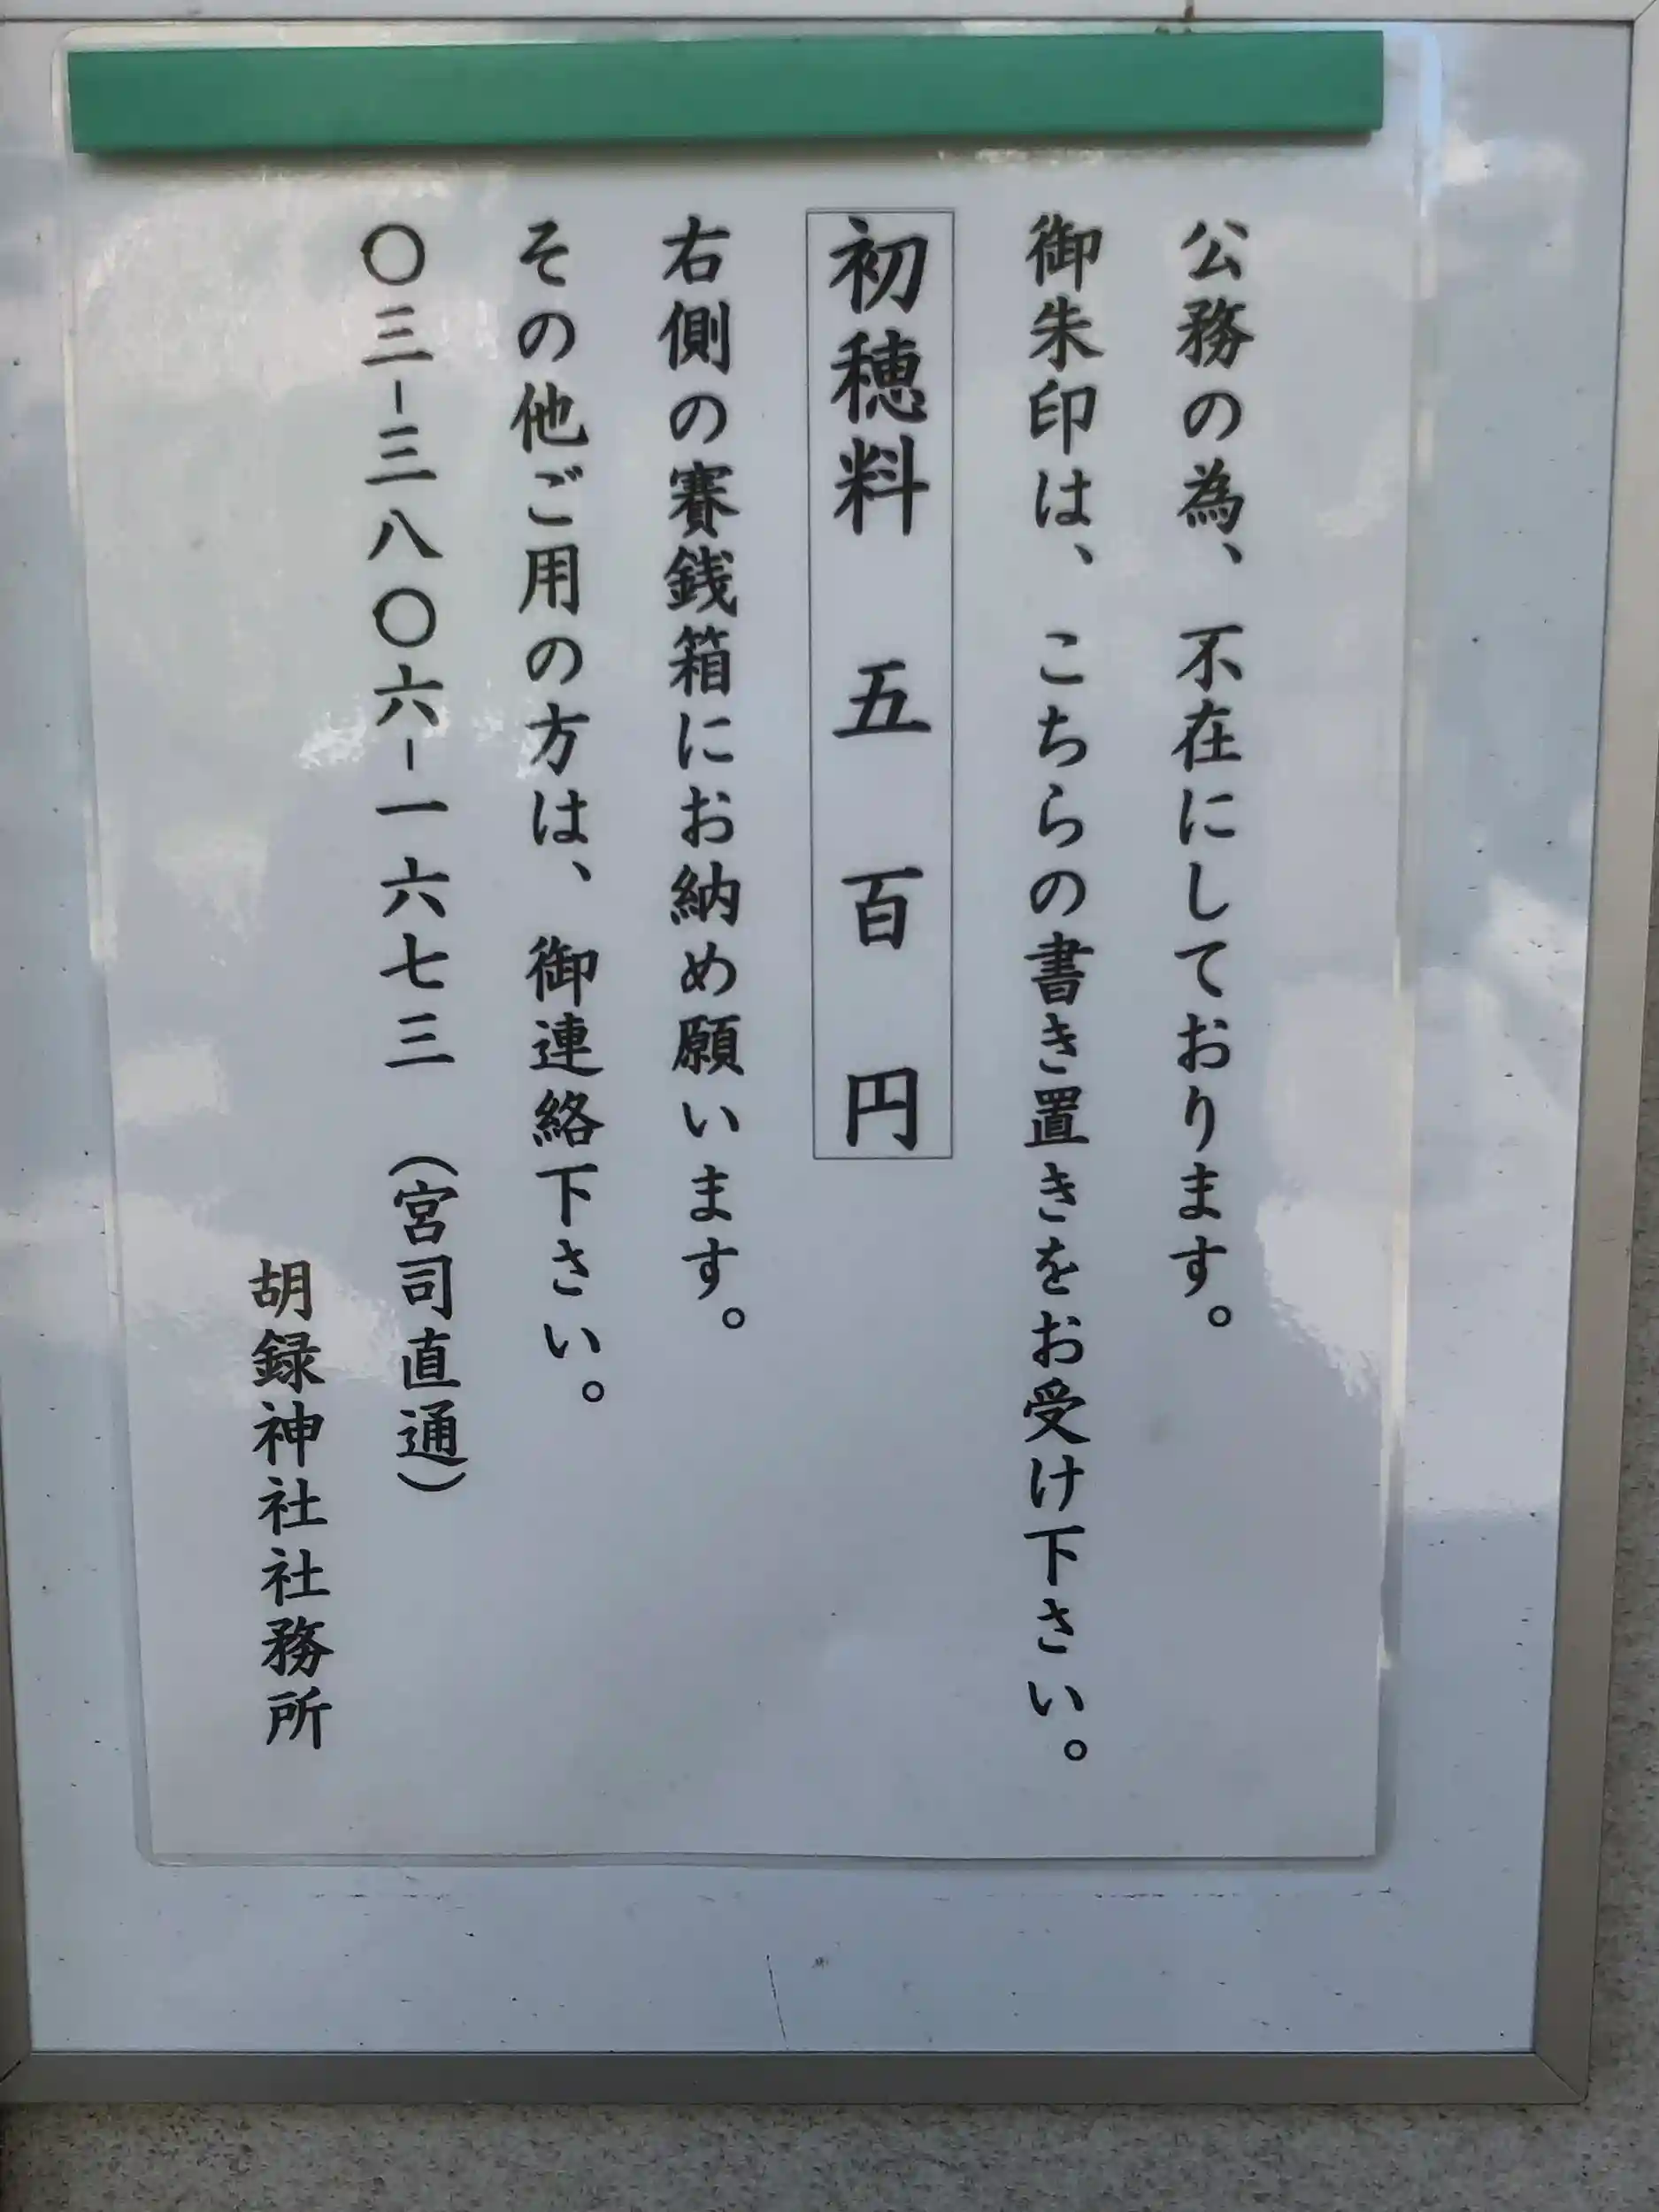 公務の為、不在にしております。
御朱印は、こちらの書き置きをお受け下さい。
初穂料 五百円
右側の賽銭箱にお納め願います。
その他ご用の方は、御連絡下さい。
〇三-三八〇六-一六七三 (宮司直通)
胡録神社社務所